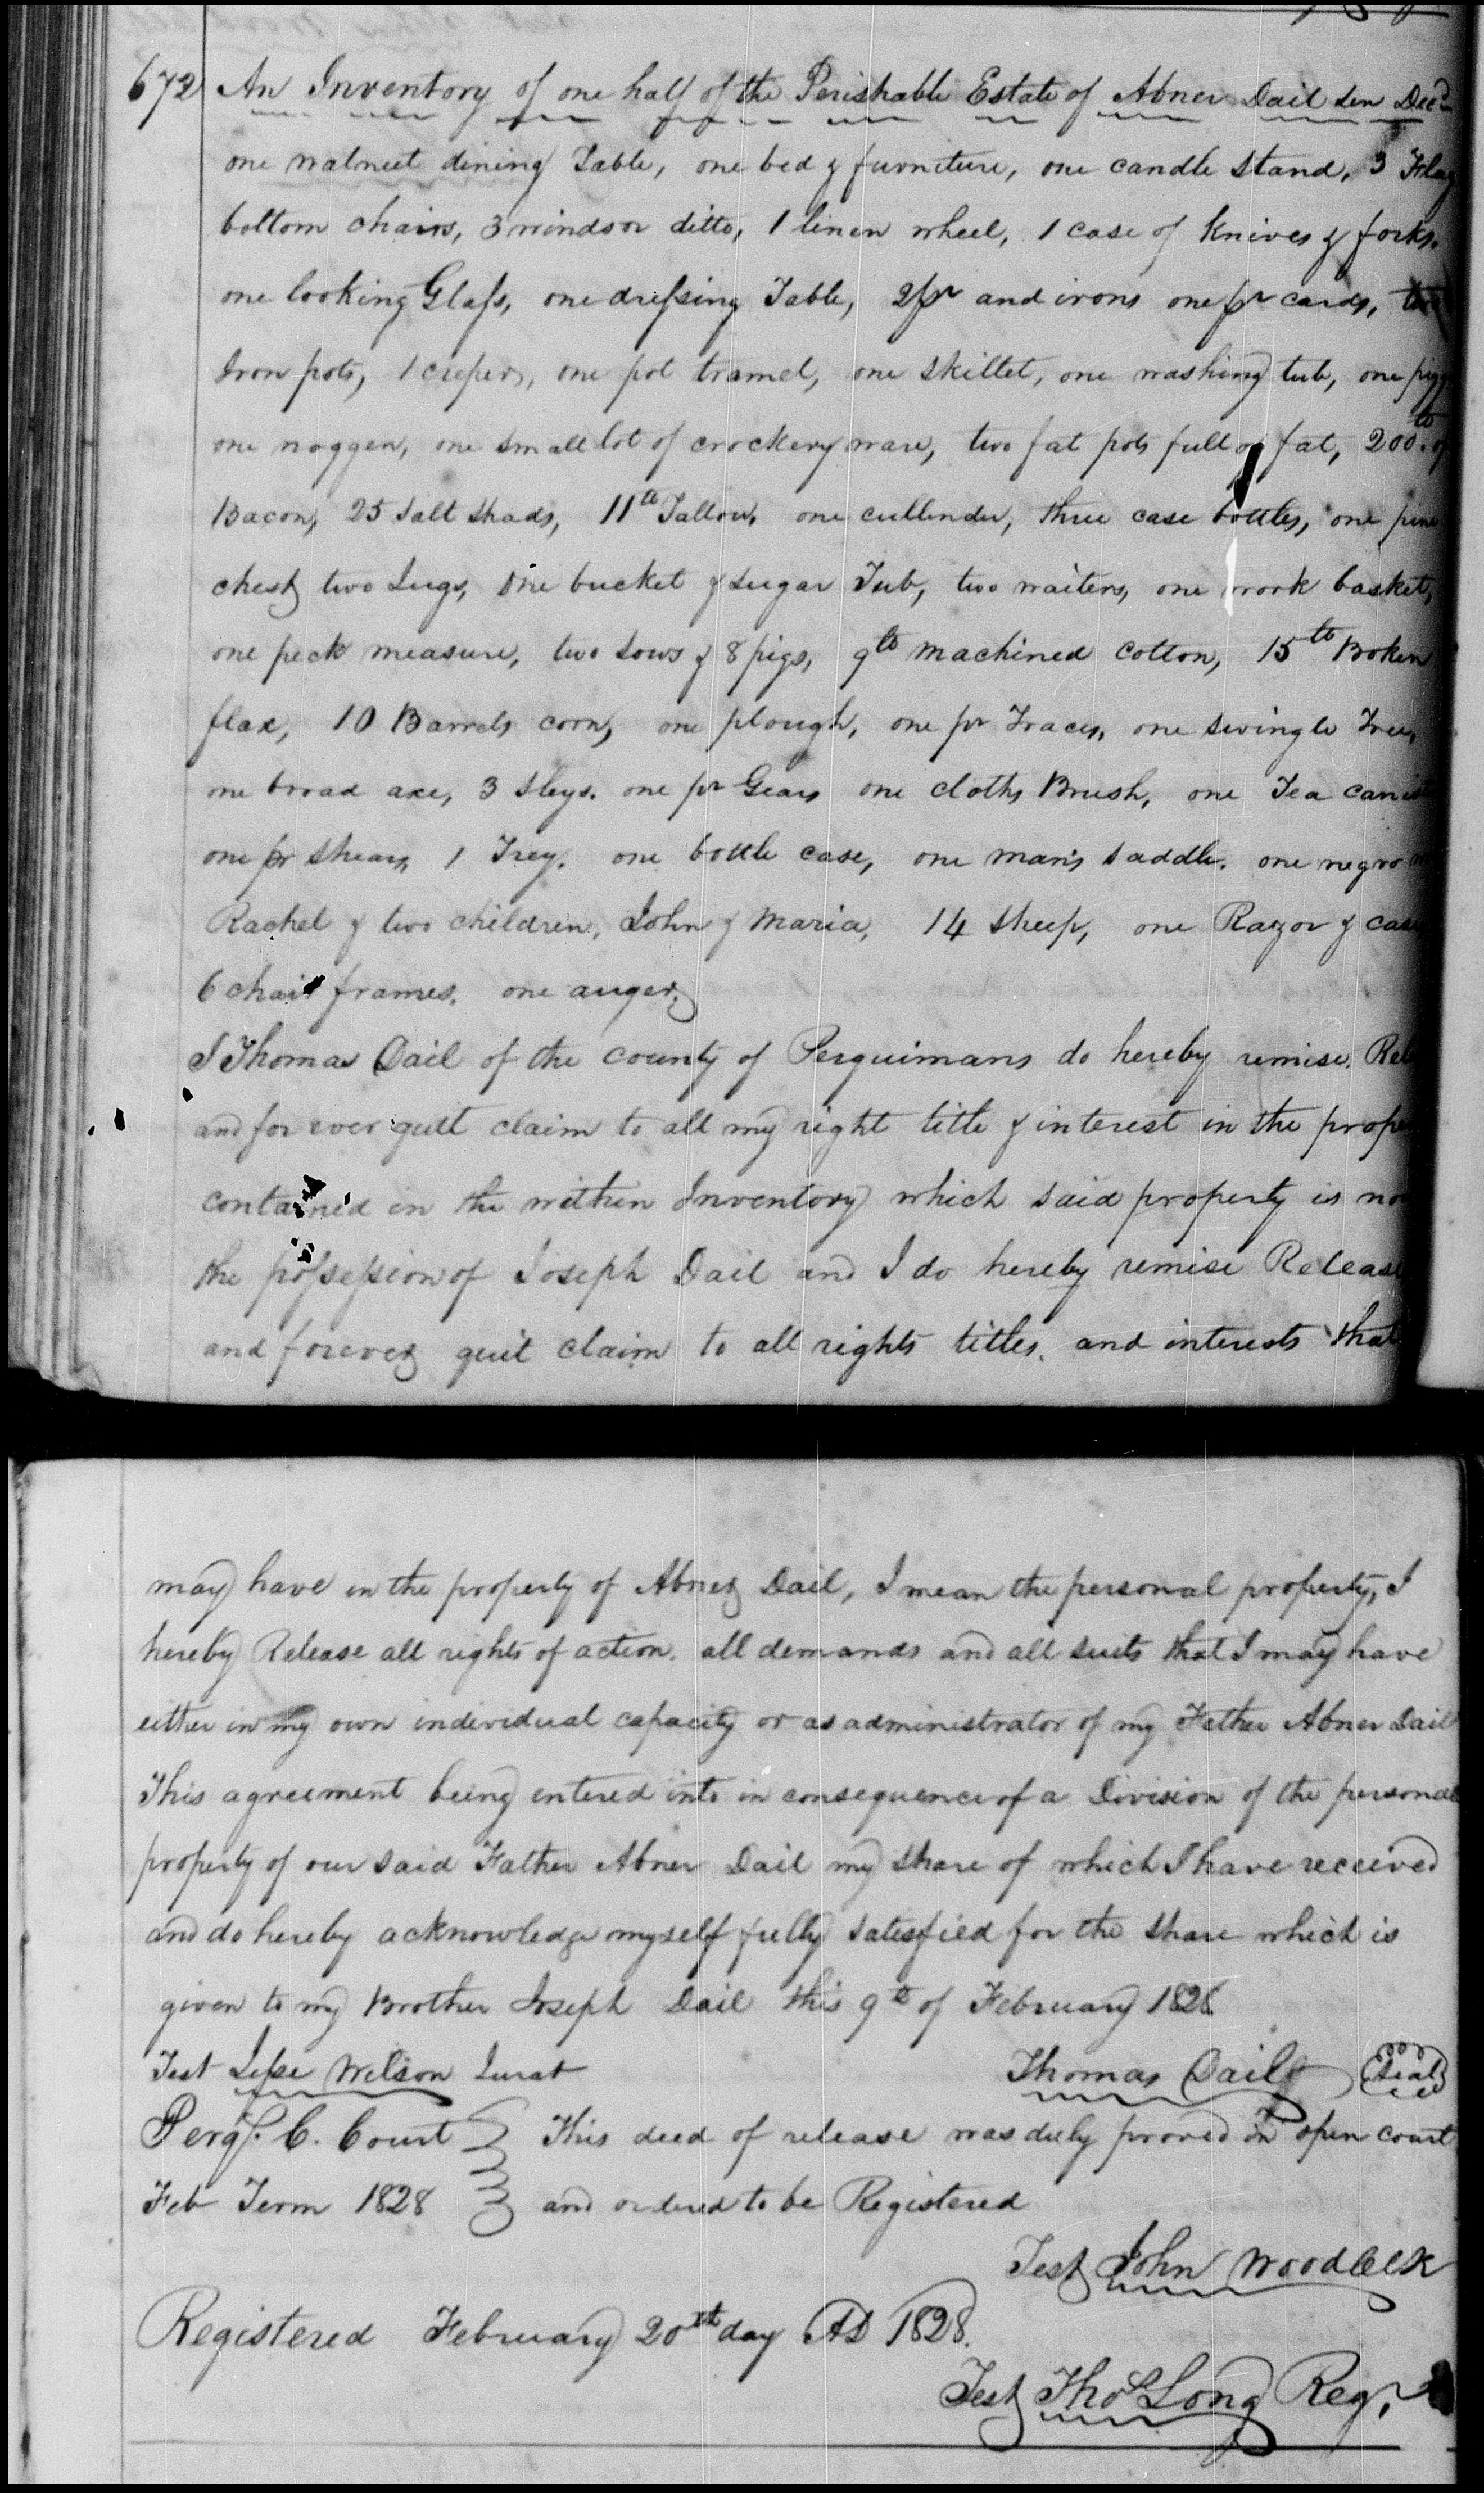 672 An Inventory of one half of the Perishable Estate of Abner Dail sen Decd
one walnut dining Table, one bed & furniture, one candle stand, 3 Flag
bottom chairs, 3 windsor ditto, 1 linen wheel, 1 case of Knives & forks.
one looking Glass, one dressing Table, 2 pr and irons one pr cards,
Iron pots, 1 , one pot tramel, one skillet, one washing tub, one pigg
one noggen, one small lot of crockery ware, two fat pots full of fat, 200 lb of
Bacon, 25 salt shads, 11 lb Tallow, one cullender, three case bottles, one pine
chest, two Jugs, one bucket & sugar Tub, two waiters, one work basket,
one peck measure, two sows & 8 pigs, 9 lb machined cotton, 15 lb Broken
flax, 10 Barrels corn, one plough, one pr Traces, one swingle Tree,
one broad axe, 3 sleys. one pr Gears one cloths Brush, one Tea canist
one pr shears, 1 Trey. one bottle case, one man's saddle. one negro
Rachel & two children, John & Maria, 14 sheep, one Razor & case
6 chair frames. one auger,
I Thomas Dail of the county of Perquimans do hereby remise. Rel
and for ever quit claim to all my right title & interest in the prope
contained in the within Inventory which said property is no
the possession of Joseph Dail and I do hereby remise Release
and forever quit claim to all rights titles. and interests that
may have in the property of Abner Dail, I mean the personal property, I
hereby Release all rights of action. all demands and all suits that I may have
either in my own individual capacity or as administrator of my Father Abner Dail
This agreement being entered into in consequence of a Division of the personal
property of our said Father Abner Dail my share of which I have received
and do hereby acknowledge myself fully satisfied for the share which is
given to my Brother Joseph Dail this 9th of February 1828
Test Jesse Wilson Jurat Thomas Dail (Seal)
Perqs. C. Court This deed of release was duly proved in open court
Feb Term 1828 and ordered to be Registered
Test John Wood Clk
Registered February 20th day AD 1828.
Test Thos Long Reg.